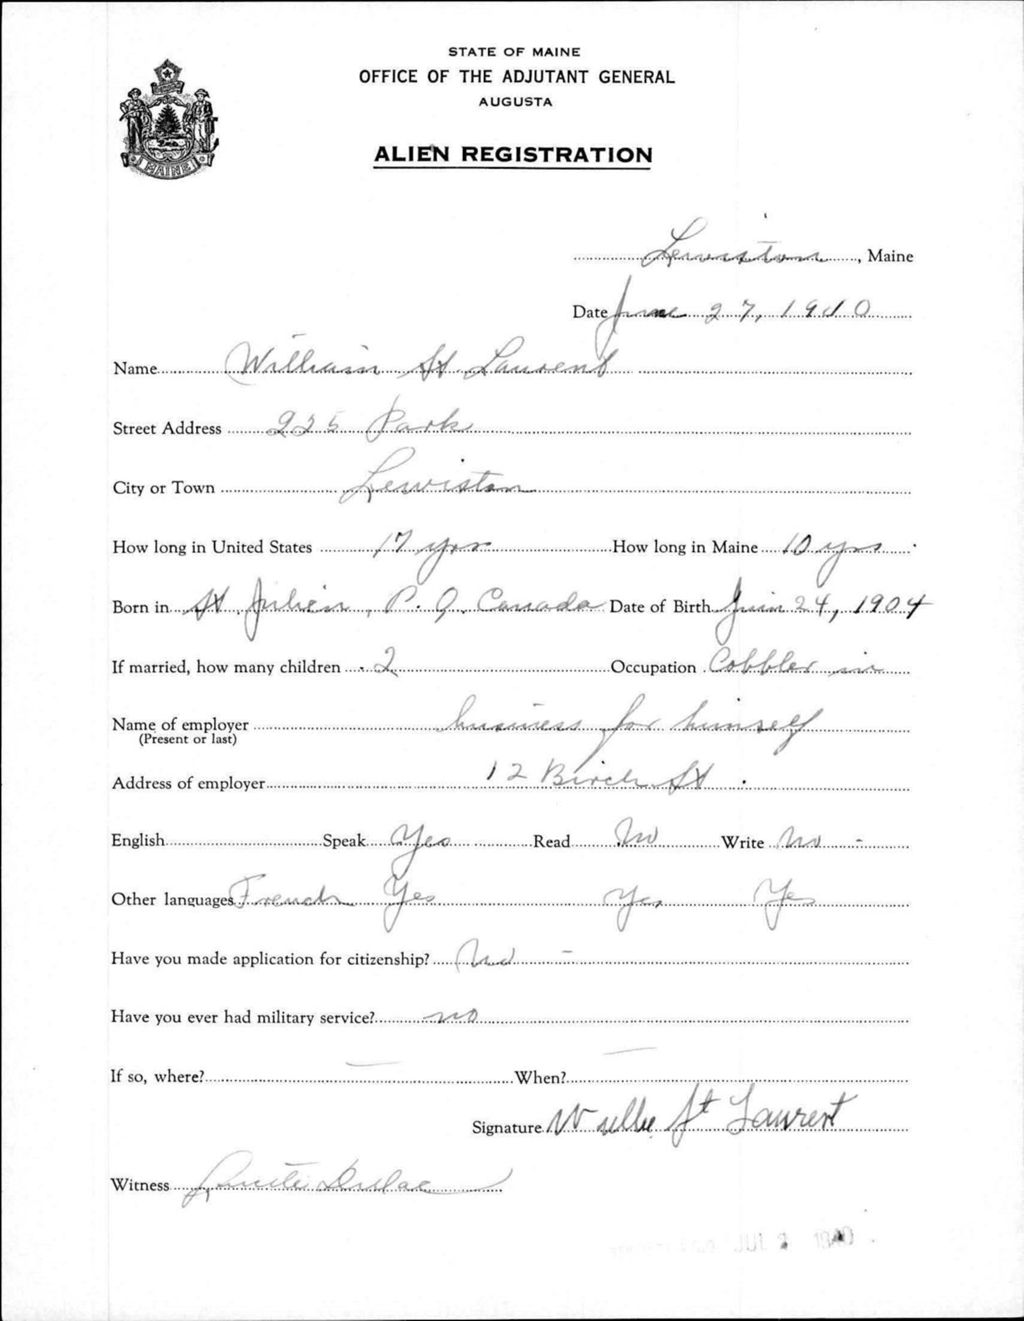 STATE OF MAINE
OFFICE OF THE ADJUTANT GENERAL
AUGUSTA
ALIEN REGISTRATION
MAINE
Lewiston, Maine
Date June 27, 1940
Name William St Laurent
Street Address 225 Park
City or Town Lewiston
How long in United States 17 yrs How long in Maine 10 yrs
Born in St Julien, P. Q. Canada Date of Birth Juin 24, 1904
If married, how many children 2 Occupation Cobbler in
Name of employer business for himself
(Present or last)
Address of employer 12 Birch St.
English Speak Yes Read No Write No -
Other languages French Yes Yes Yes
Have you made application for citizenship? No -
Have you ever had military service? no
If so, where? — When? —
Signature Willie St Laurent
Witness Lucille Dulac
JUL 2 1940